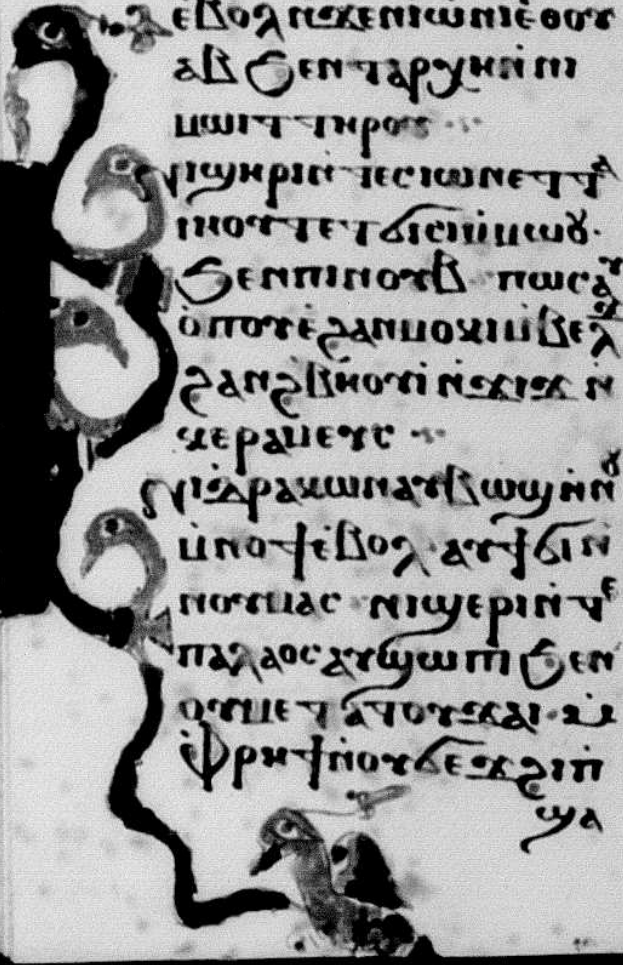 ⲉⲃⲟⲗ ⲛϫⲉⲛⲓⲱⲛⲓ ⲉⲑⲟⲩ
ⲁⲃ ϧⲉⲛ ⲧⲁⲣⲭⲏ ⲛⲛⲓ
ⲙⲱⲓⲧ ⲧⲏⲣⲟⲩ
ⲛⲓϣⲏⲣⲓ ⲛⲧⲉ ⲥⲓⲱⲛ ⲉⲧⲧⲁ
ⲓⲏⲟⲩⲧ ⲉⲧϭⲓⲥⲓ ⲙⲙⲱⲟⲩ
ϧⲉⲛ ⲡⲓⲛⲟⲩⲃ ⲡⲱⲥ ⲁⲩ
ⲟⲡⲟⲩ ⲉϩⲁⲛⲙⲟⲕⲓ ⲙⲃⲉⲗϫ
ϩⲁⲛϩⲃⲏⲟⲩⲓ ⲛϫⲓϫ ⲛ
ⲕⲉⲣⲁⲙⲉⲩⲥ
ⲛⲓⲇⲣⲁⲕⲱⲛ ⲁⲩⲃⲱϣ ⲛⲛⲟⲩ
ⲙⲛⲟϯ ⲉⲃⲟⲗ ⲁⲩϯϭⲓ ⲛ
ⲛⲟⲩⲙⲁⲥ ⲛⲓϣⲉⲣⲓ ⲛⲧⲉ
ⲡⲁⲗⲁⲟⲥ ⲁⲩϣⲱⲡⲓ ϧⲉⲛ
ⲟⲩⲙⲉⲧⲁⲧⲟⲩϫⲁⲓ ⲙ
ⲫⲣⲏϯ ⲛⲟⲩϭⲉϫ ϩⲓ ⲡ
ϣⲁ